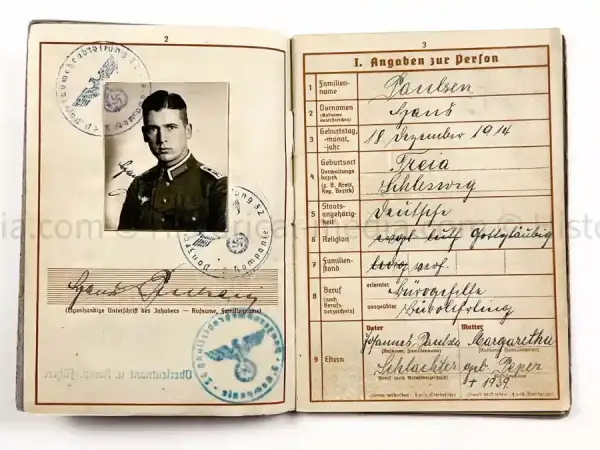 2
Hans Paulsen
(Eigenhändige Unterschrift des Inhabers – Rufname, Familienname)
Oberleutnant u. Komp.-Führer
3
I. Angaben zur Person
1 Familien-
name
Paulsen
2 Vornamen
(Rufname
unterstreichen)
Hans
3 Geburtstag,
-monat,
-jahr
18. Dezember 1914
4 Geburtsort
Verwaltungs-
bezirk
(z. B. Kreis,
Reg.-Bezirk)
Treia
Schleswig
5 Staats-
angehörig-
keit
Deutsche
6 Religion
evgl. luth Gottgläubig
7 Familien-
stand
ledig verh.
8 Beruf
(nach
Berufs-
verzeichnis)
erlernter
Bürogehilfe
ausgeübter
9 Eltern
Vater
Mutter
Johannes Paulsen
Margaretha
(Rufname, Familienname)
(Rufname, Familienname)
Schlachter
geb. Peper
+ 1939.